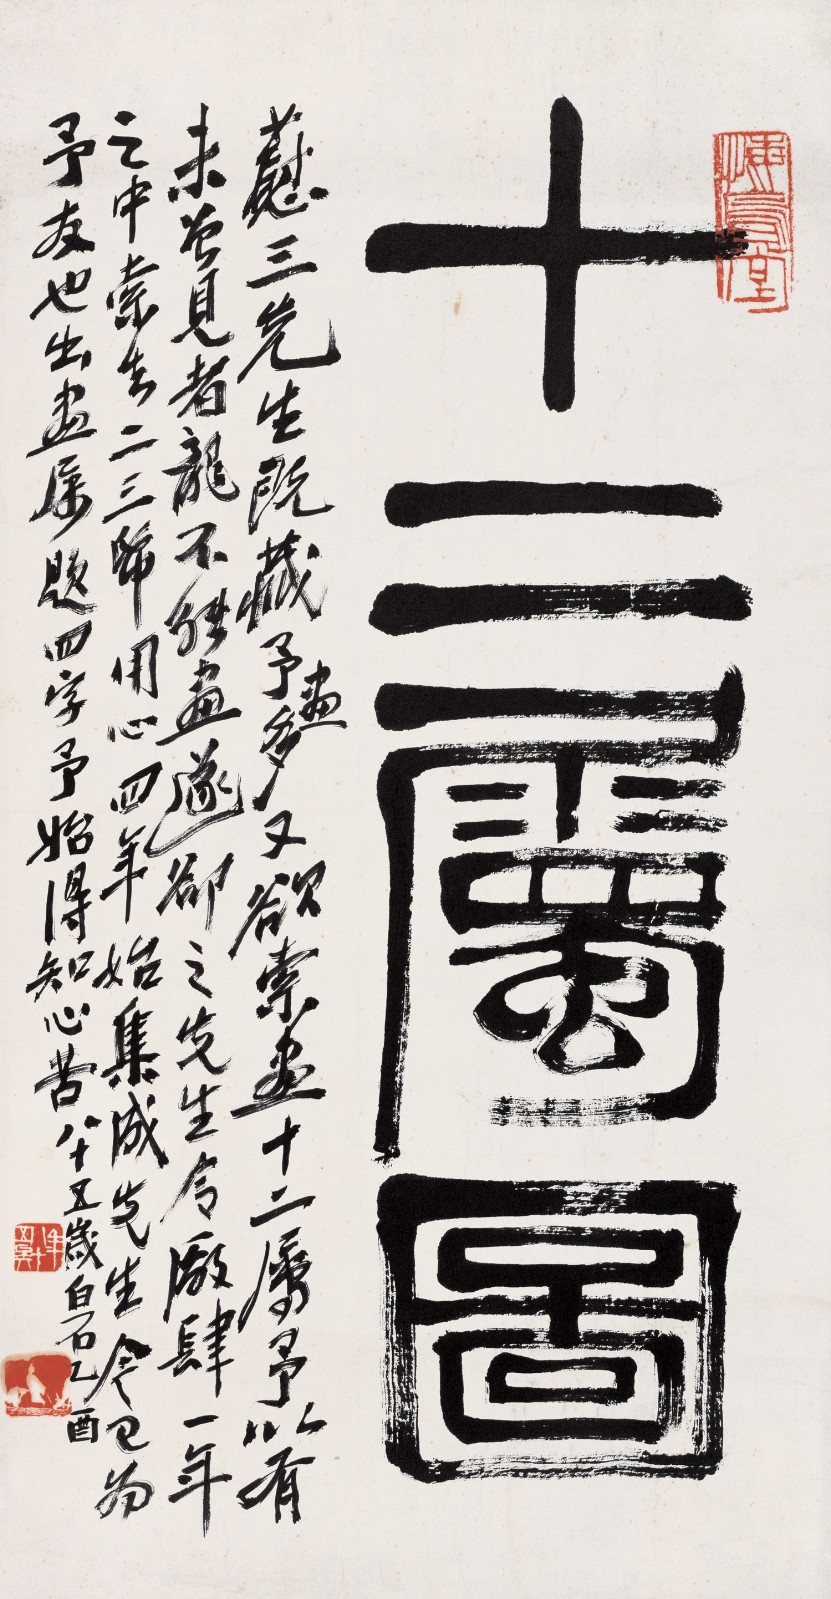 十二屬圖
三先生既藏予畫多又欲索畫十二屬予以有
未曾見者龍不能畫遂卻之先生令廠肆一年
之中索去二三歸用心四年始集成先生今已為
予友也出畫屬題四字予始得知心苦八十五歲白石乙酉
悔烏堂